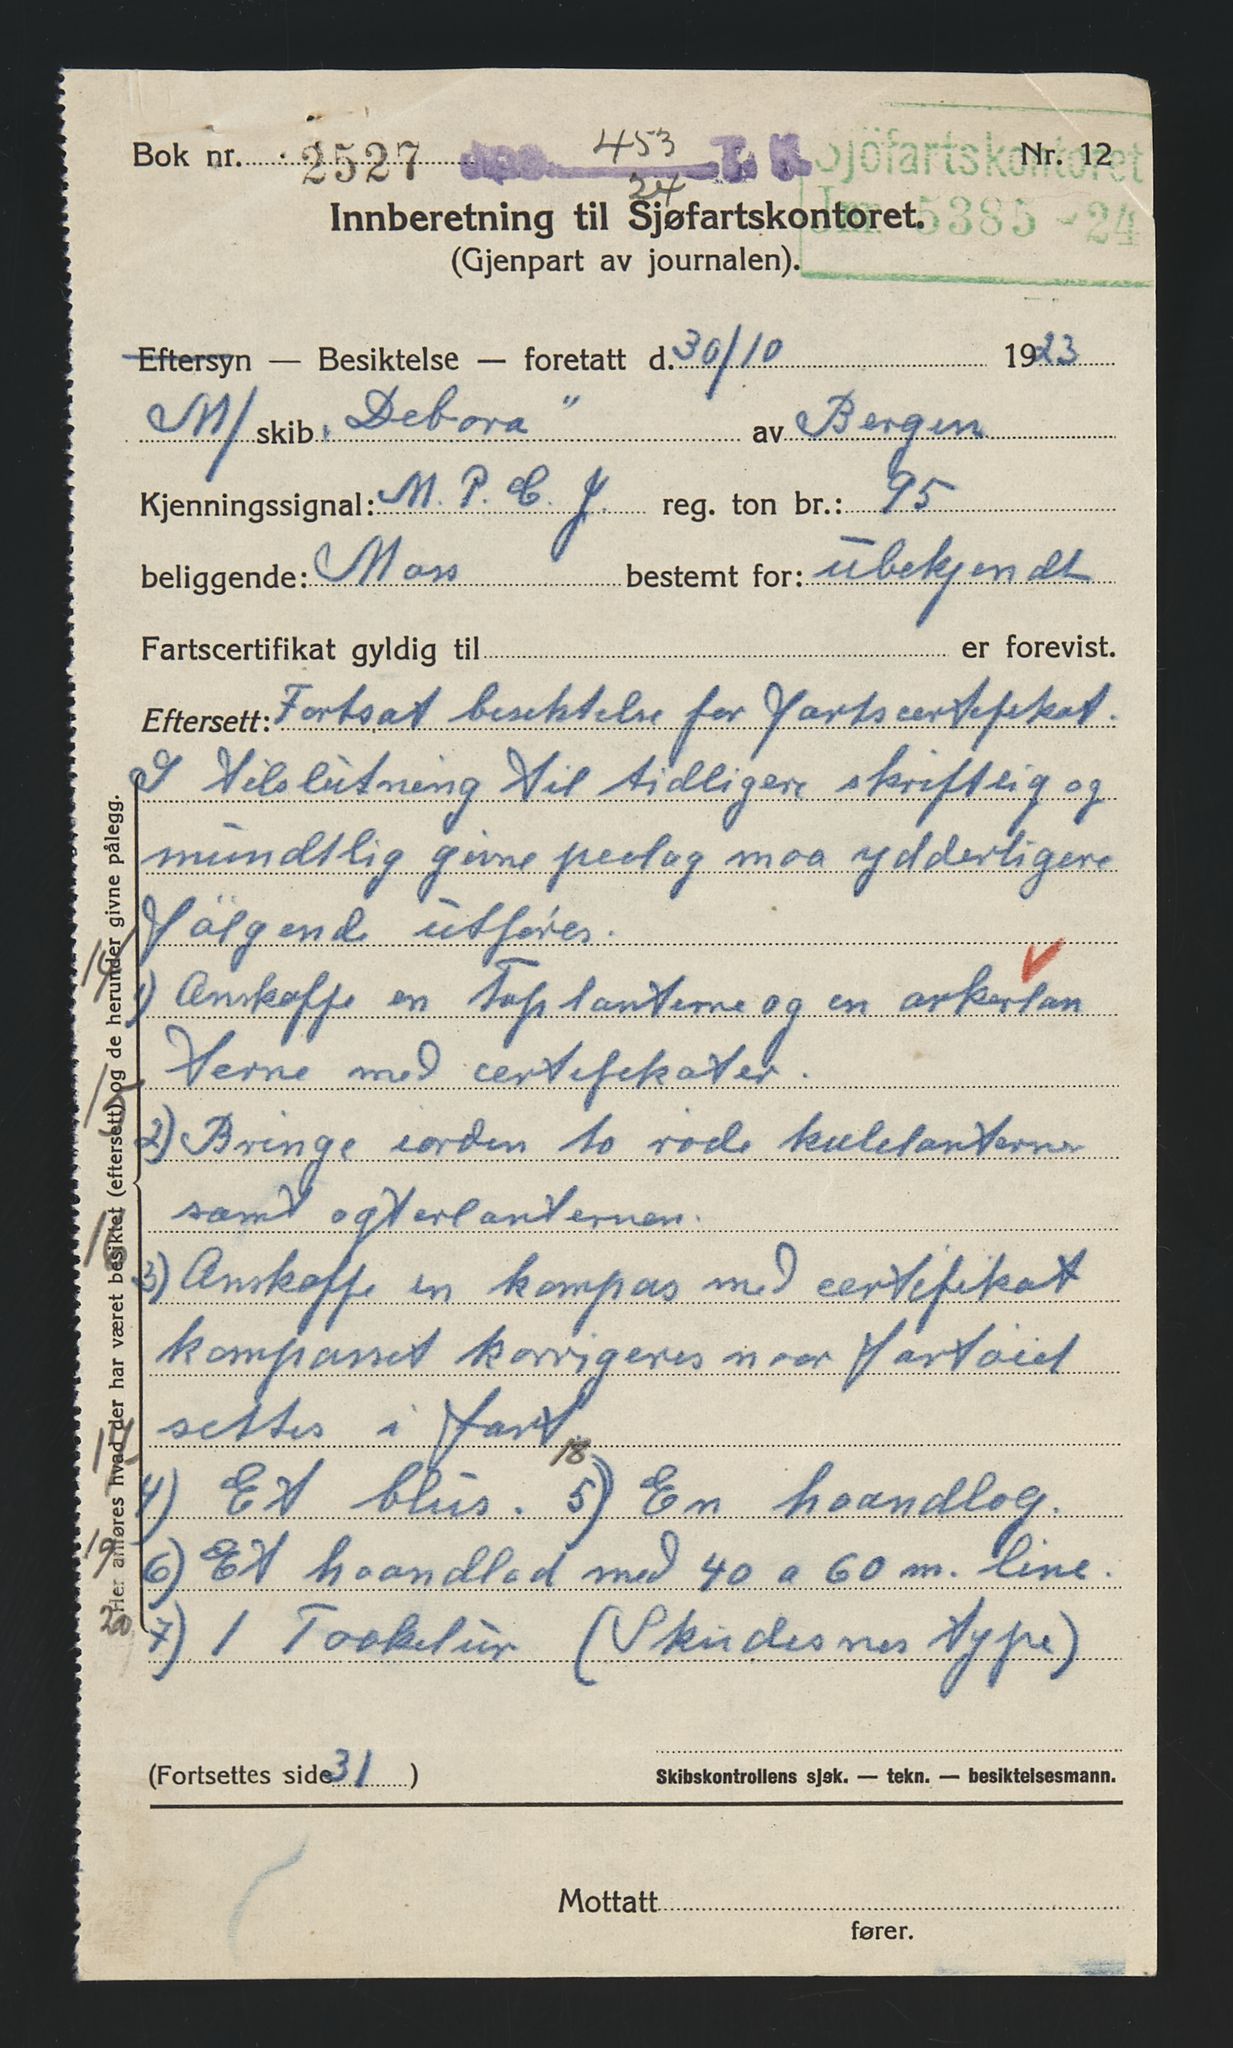 Bok nr. 2527 453 Nr. 12
24
Sjöfartskontoret
Jnr. 5385 - 24
Innberetning til Sjøfartskontoret.
(Gjenpart av journalen).
Eftersyn — Besiktelse — foretatt d. 30/10 1923
M/ skib „Debora" av Bergen
Kjenningssignal: M. P. C. J. reg. ton br.: 95
beliggende: Moss bestemt for: ubekjendt
Fartscertifikat gyldig til er forevist.
Eftersett: Fortsat besektelse for fartscertefekat.
I tilslutning til tidligere skriftlig og
mundtlig givne peolag maa ydderligere
følgende utføres.
1) Anskaffe en Toplanterne og en ankerlan
terne med certefekater.
2) Bringe iorden to røde kulelanterner
samt agterlanternen.
3) Anskaffe en kompas med certefikat
kompasset korrigeres naar fartøiet
settes i fart
4) Et blus. 18 5) En haandlog.
6) Et haandlod med 40 a 60 m. line.
7) 1 Taakelur (Skudesnes type)
Her anføres hvad der har været besiktet (eftersett) og de herunder givne pålegg.
14
15
16
17
19
20
(Fortsettes side 31 )
Skibskontrollens sjøk. — tekn. — besiktelsesmann.
Mottatt
fører.